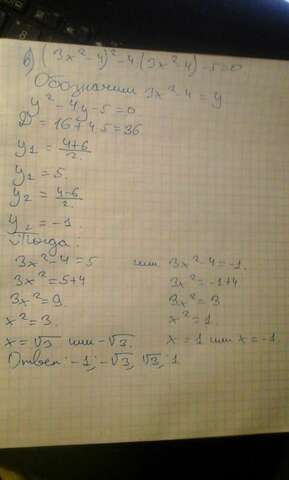 в) (3x²-4)²-4(3x²-4)-5=0
Обозначим 3x²-4=y
y²-4y-5=0
D=16+4·5=36
y1=4+6/2
y1=5.
y2=4-6/2.
y2=-1.
Тогда:
3x²-4=5 или 3x²-4=-1.
3x²=5+4 3x²=-1+4
3x²=9. 3x²=3
x²=3. x²=1.
x=√3 или -√3. x=1 или x=-1.
Ответ: -1; -√3, √3; 1